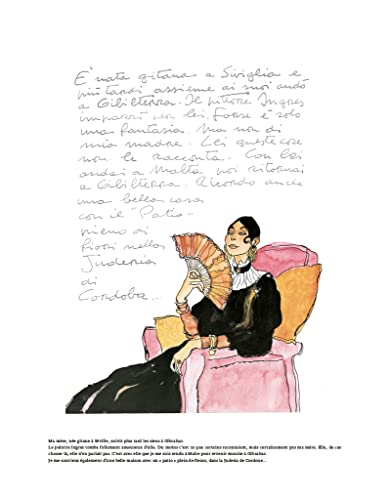 E' nata gitana a Siviglia e
più tardi assieme ai suoi andò
a Gibilterra. Il pittore Ingres
impazzì per lei. Forse è solo
una fantasia. Ma non di
mia madre. Lei queste cose
non le racconta. Con lei
andai a Malta poi ritornai
a Gibilterra. Ricordo anche
una bella casa
con il "Patio"
pieno di
fiori nella
Juderia
di
Cordoba...
Ma mère, née gitane à Séville, suivit plus tard les siens à Gibraltar.
Le peintre Ingres tomba follement amoureux d'elle. Du moins c'est ce que certains racontaient, mais certainement pas ma mère. Elle, de ces
choses-là, elle n'en parlait pas. C'est avec elle que je me suis rendu à Malte pour revenir ensuite à Gibraltar.
Je me souviens également d'une belle maison avec un « patio » plein de fleurs, dans la Juderia de Cordoue...